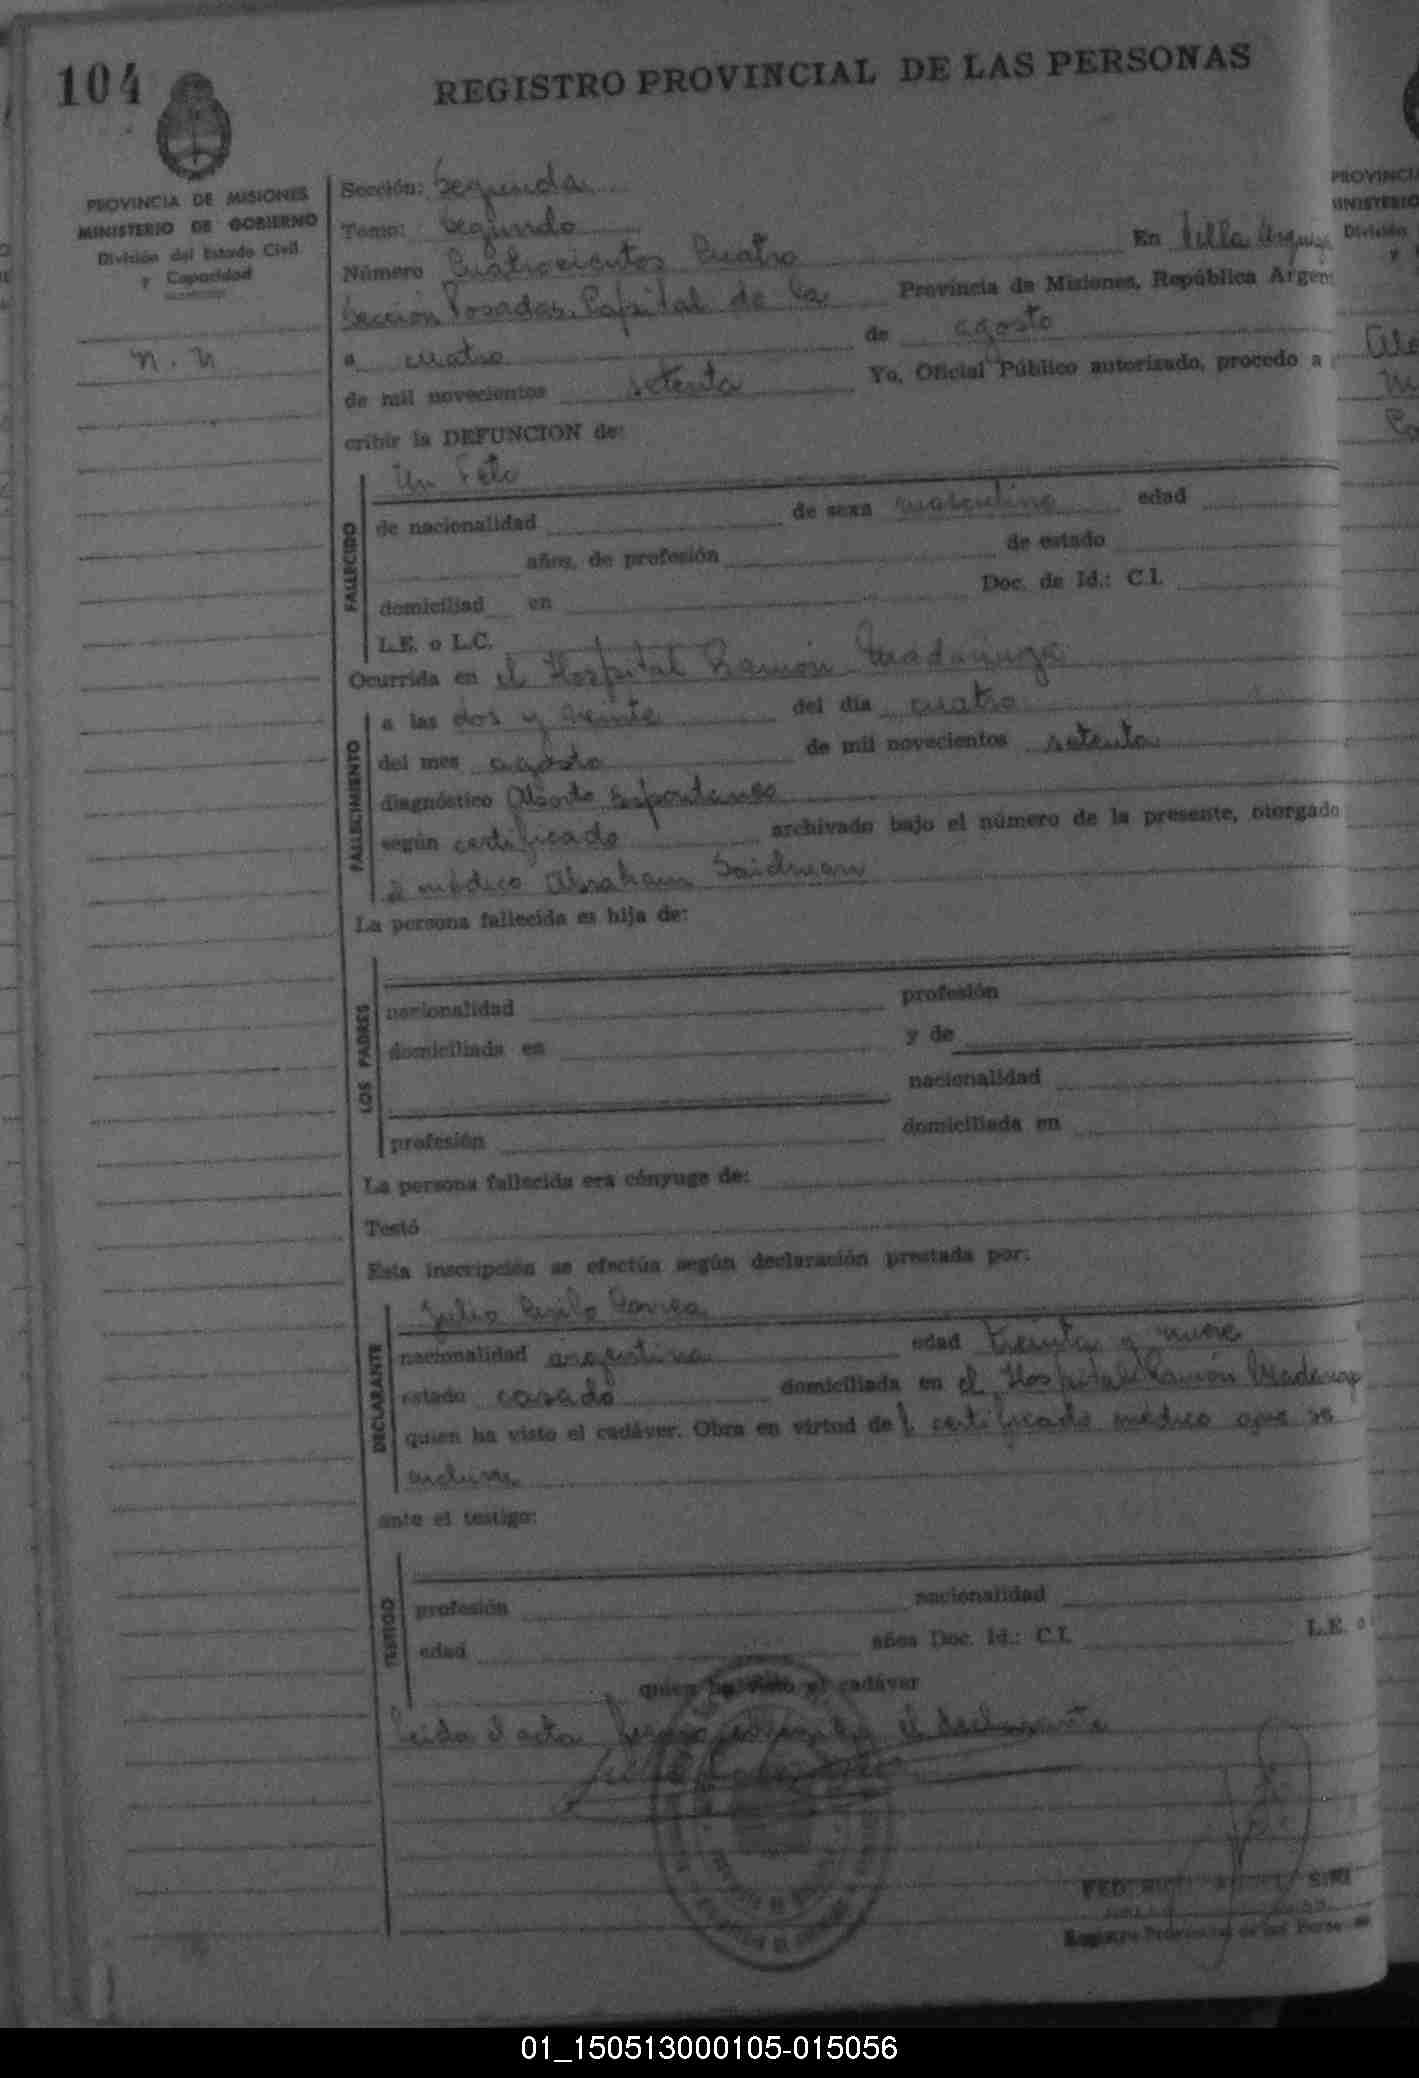 104
REGISTRO PROVINCIAL DE LAS PERSONAS
PROVINCIA DE MISIONES
MINISTERIO DE GOBIERNO
División del Estado Civil
y Capacidad
n. n
Sección: Segunda
Tomo: Segundo
Número Cuatrocientos Cuatro En Villa Urquiza
Sección Posadas, Capital de la Provincia de Misiones, República Argen
a cuatro de agosto
de mil novecientos setenta Yo, Oficial Público autorizado, procedo a
cribir la DEFUNCION de:
FALLECIDO
Un Feto
de nacionalidad de sexo masculino edad
años, de profesión de estado
domiciliad en Doc. de Id.: C.I.
L.E. o L.C.
Ocurrida en el Hospital Ramón Madariaga
FALLECIMIENTO
a las dos y veinte del día cuatro
del mes agosto de mil novecientos setenta
diagnóstico Aborto Espontaneo
según certificado archivado bajo el número de la presente, otorgado
médico Abraham Saidman
La persona fallecida es hija de:
LOS PADRES
nacionalidad profesión
domiciliada en y de
nacionalidad
profesión domiciliada en
La persona fallecida era cónyuge de:
Testó
Esta inscripción se efectúa según declaración prestada por:
DECLARANTE
Julio Correa
nacionalidad argentina edad treinta y nueve
estado casado domiciliada en el Hospital Ramón Madariaga
quien ha visto el cadáver. Obra en virtud del certificado médico que se
archiva
ante el testigo:
TESTIGO
profesión nacionalidad
edad años Doc. Id.: C.I. L.E. o
quien ha visto el cadáver
Leida el acta el declarante
SIRI
Registro Provincial de las Personas
PROVINCI
MINISTERIO
División
y
01_150513000105-015056